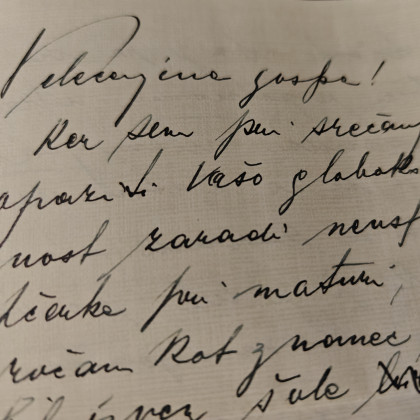 Velecenjena gospa!
Ker sem pri srečan
opazil Vašo globok
nost zaradi neus
hčerke pri maturi,
ročam kot znanec
šole